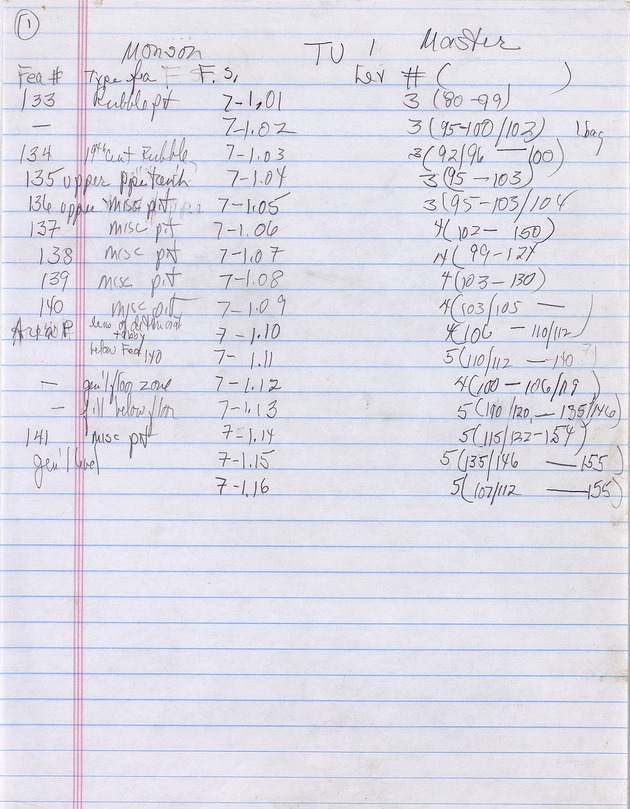 1
Monson TU 1 Master
Fea # Type fea F.S. Lev # ( )
133 Rubble pit 7-1.01 3 (80-99)
— 7-1.02 3 (95-100/103) 1 bag
134 19th cent Rubble 7-1.03 3 (92/96 — 100)
135 upper 7-1.04 3 (95 — 103)
136 upper misc pit 7-1.05 3 (95-103/104
137 misc pit 7-1.06 4 (102 — 150)
138 misc pit 7-1.07 4 (99-124
139 misc pit 7-1.08 4 (103-130)
140 misc pit 7-1.09 4 (103/105 — )
Area P lens of + tabby 7-1.10 4 (106 — 110/112)
below Fea 140 7-1.11 5 (110/112 — 140
— gen'l/floor zone 7-1.12 4 (100 — 106/119)
— fill below floor 7-1.13 5 (110/120 — 135/146)
141 misc pit 7-1.14 5 (115/132-154)
gen'l level 7-1.15 5 (135/146 — 155)
7-1.16 5 (107/112 — 155)